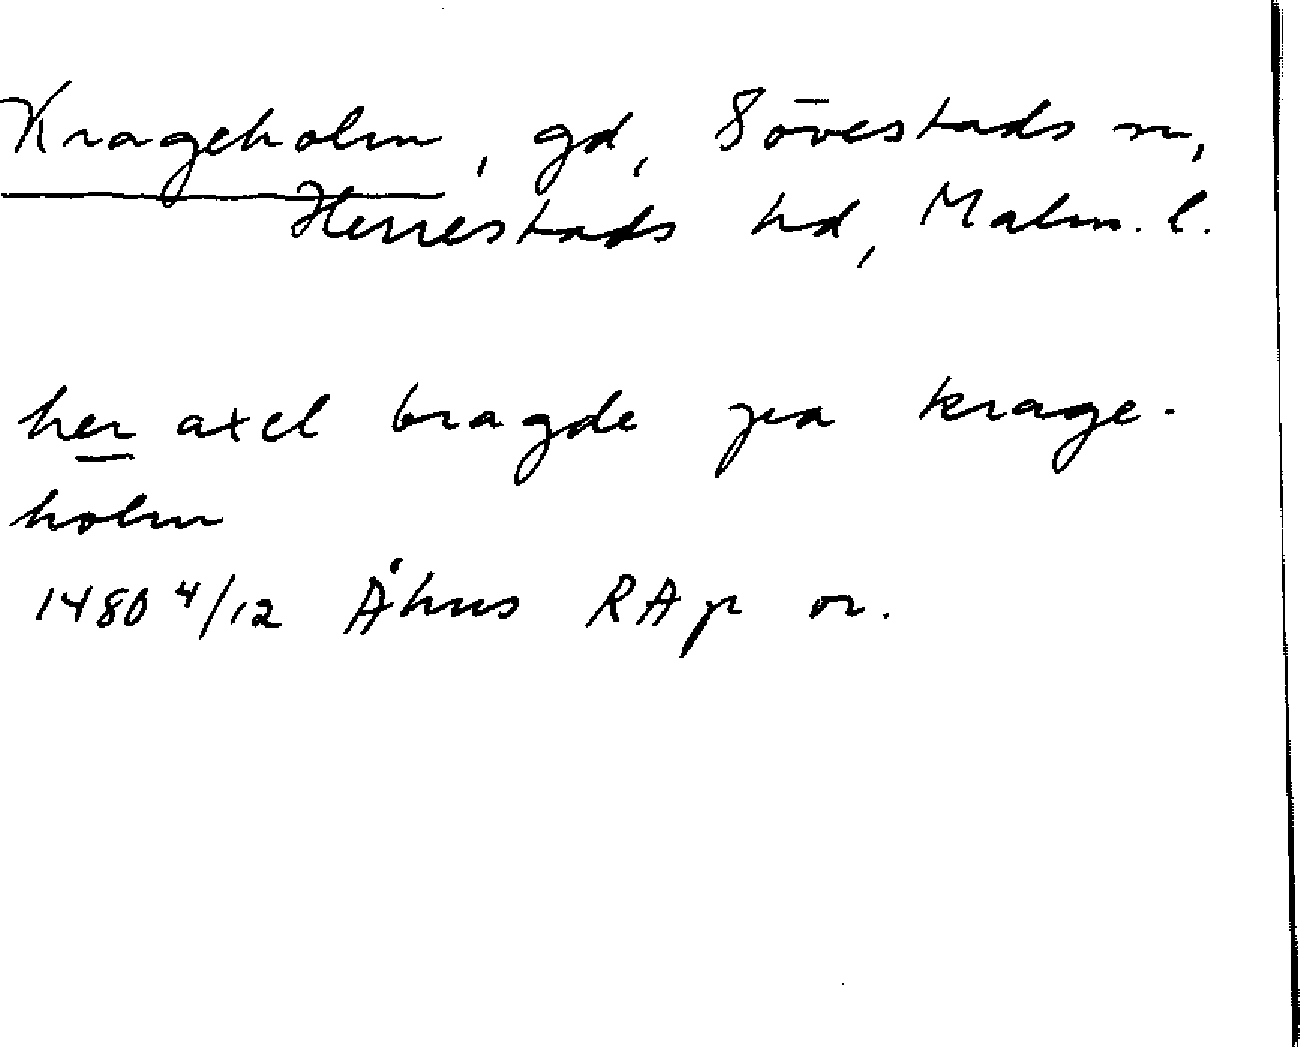 Krageholm, gd, Sövestads sn,
Herrestads hd, Malm. l.
her axel bragde pa krage-
holm
1480 4/12 Åhus RAp or.